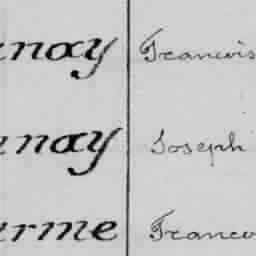 nay Francois
nay Joseph
rme Franco